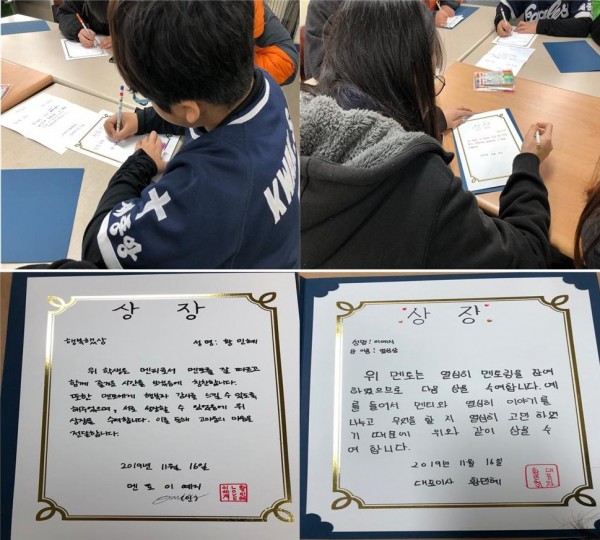 KWANG
세종광
상 장
상 장
행복했상 성명: 황민혜
위 학생은 멘티로서 멘토를 잘 따르고
함께 즐거운 시간을 보냈음에 칭찬합니다.
또한 멘토에게 행복과 감사를 느낄 수 있도록
해주었으며, 서로 성장할 수 있었음에 위
상장을 수여합니다. 이를 통해 고마움의 마음을
전달합니다.
2019년 11월 16일
멘토 이예지
상 장
성명: 이예지
상 이름: 열심상
위 멘토는 열심히 멘토링을 참여
하였으므로 다음 상을 수여합니다. 예
를 들어서 멘티와 열심히 이야기를
나누고 무엇을 할 지 열심히 고민 하였
기 때문에 위와 같이 상을 수
여 합니다.
2019년 11월 16일
대표이사 황민혜